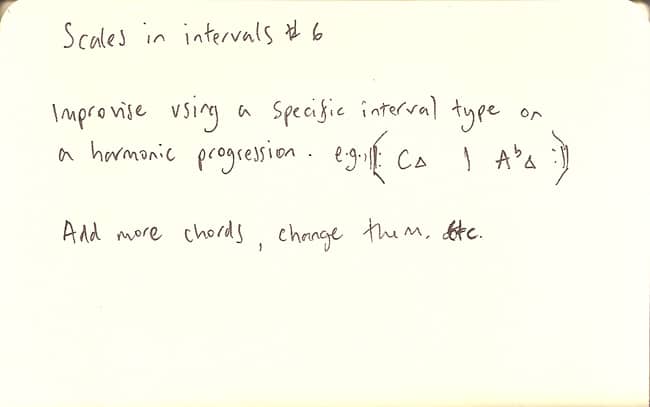 Scales in intervals # 6
Improvise using a specific interval type on
a harmonic progression. e.g. ‖: C△ | A♭△ :‖
Add more chords, change them, etc.